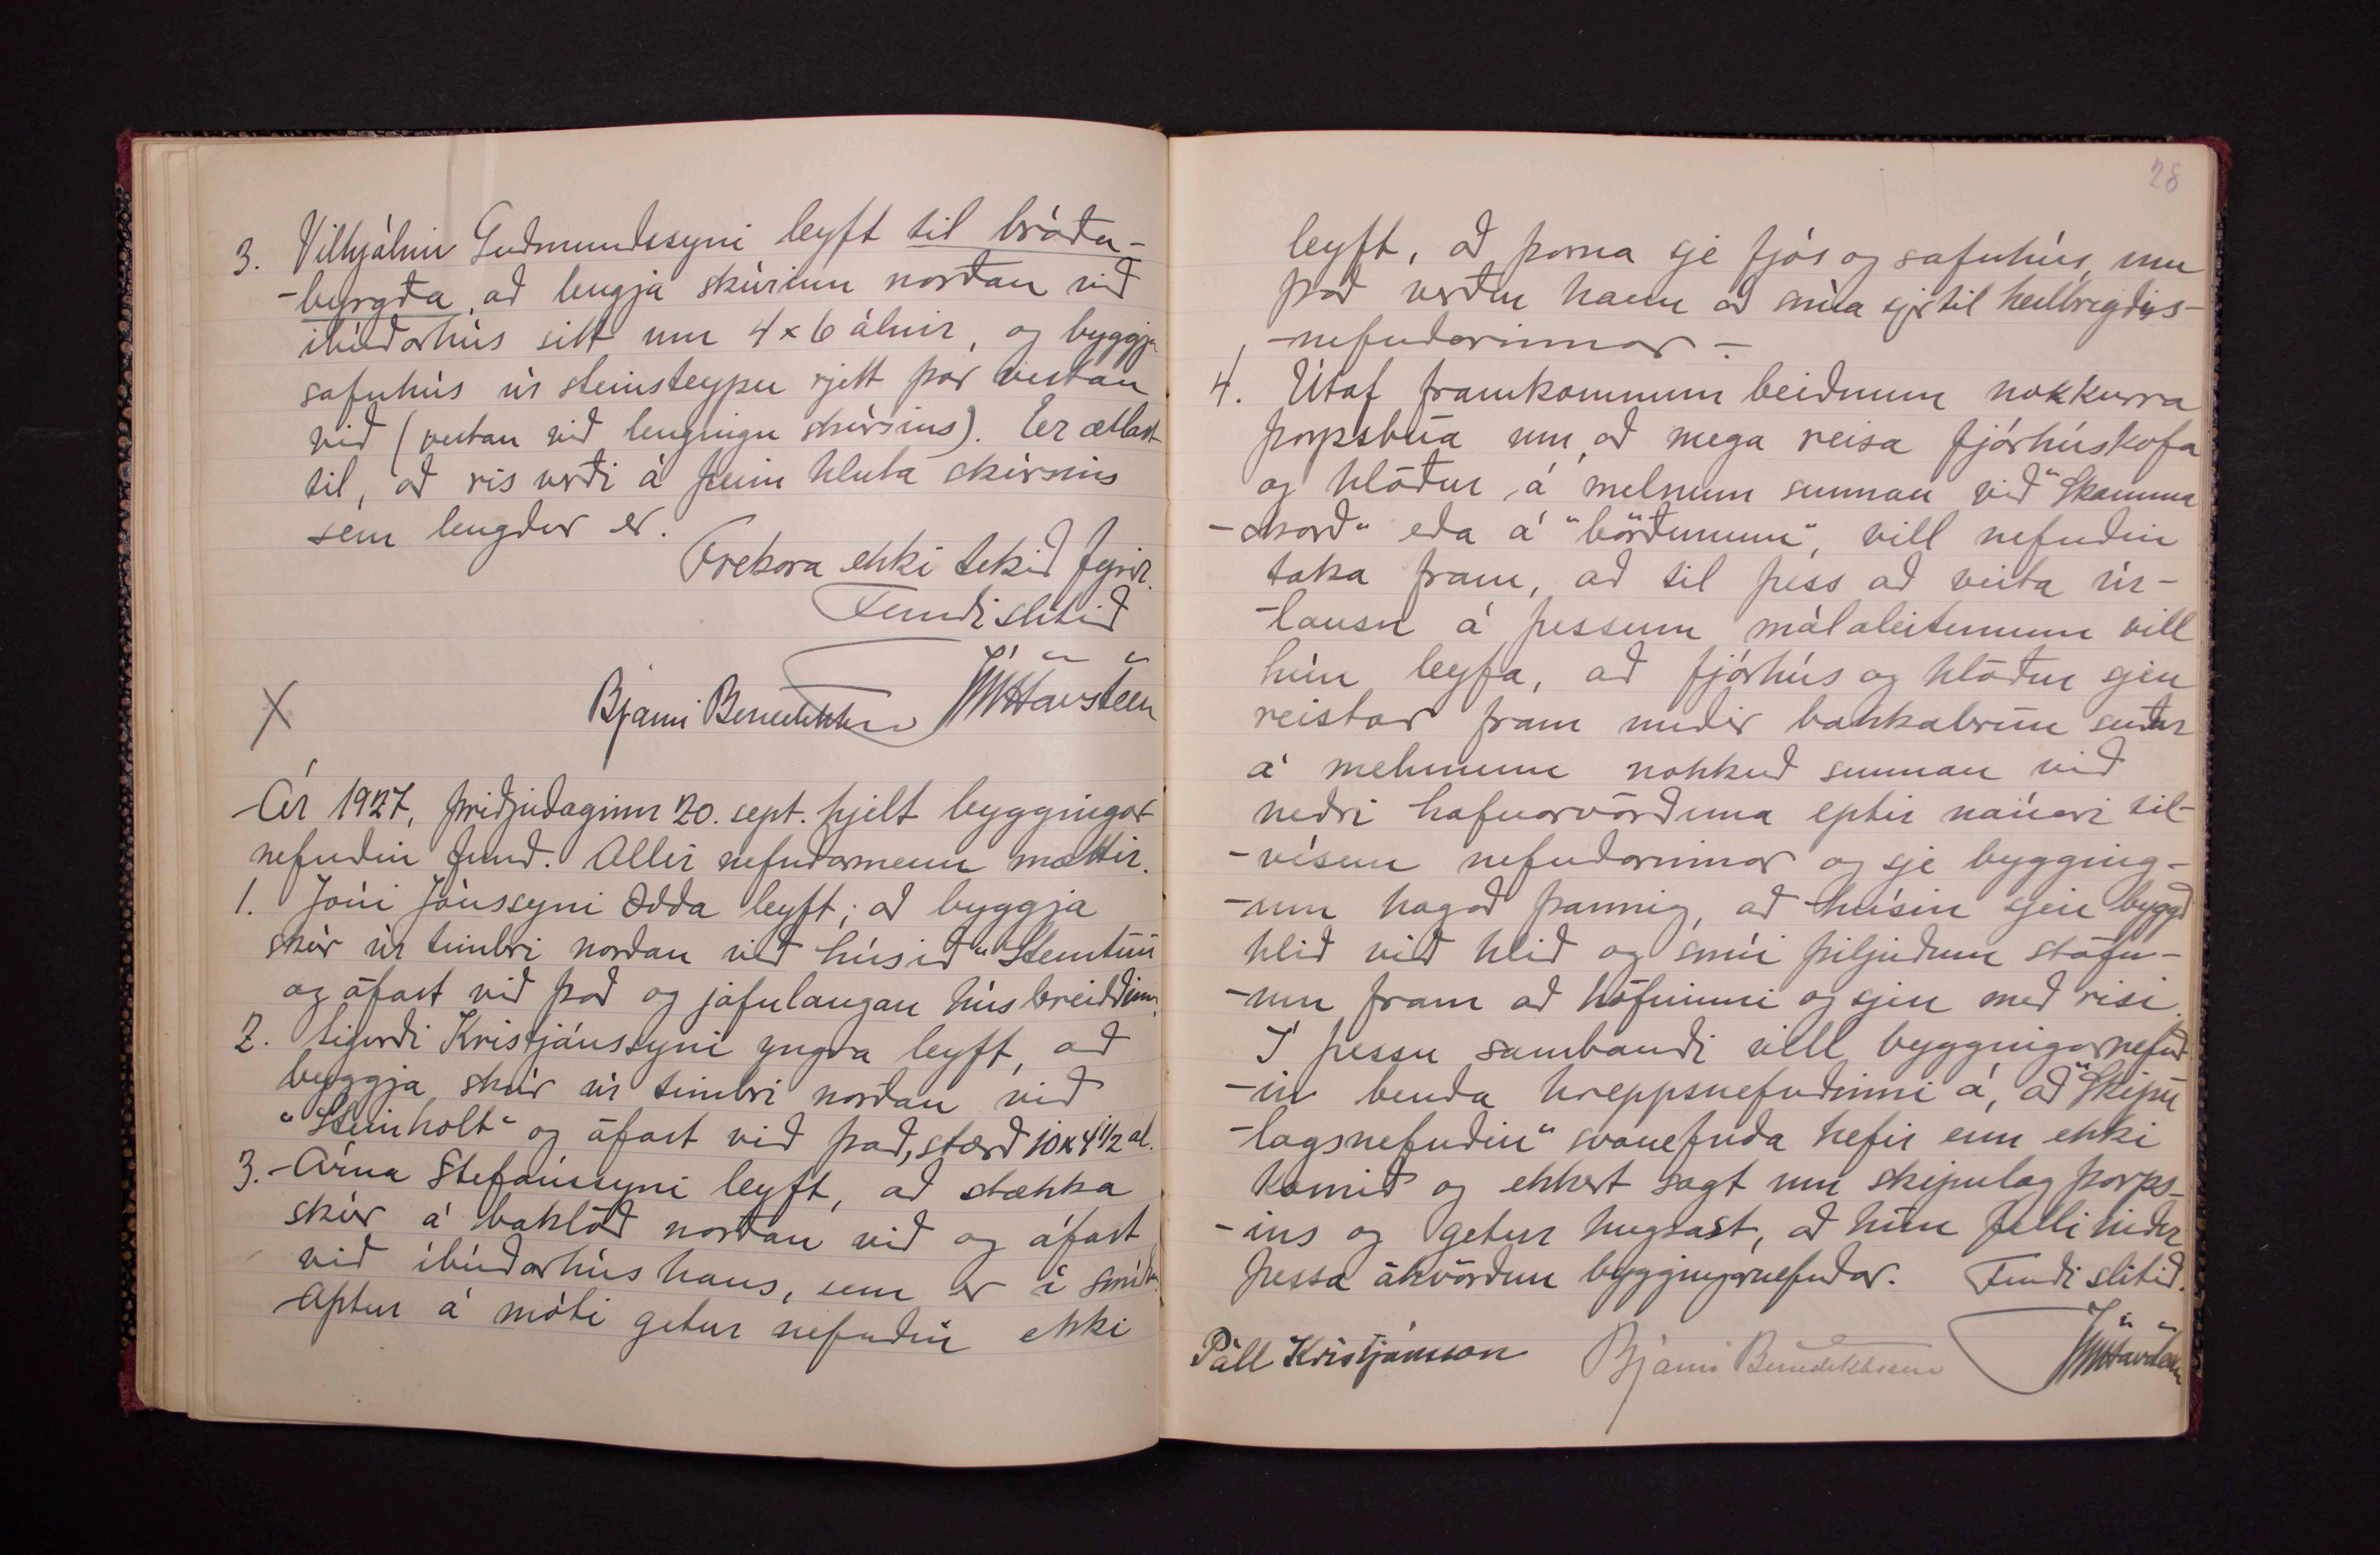 3. Vilhjálmi Guðmundssyni leyft til bráða-
-byrgða, að lengja skúrinn norðan við
íbúðarhús sitt um 4 x 6 álnir, og byggja
safnhús úr steinsteypu rjett þar vestan
við (vestan við lengingu skúrsins). Er ætlast
til, að ris verði á þeim hluta skúrsins
sem lengdur er.
Frekara ekki tekið fyrir.
Fundi slitið
Bjarni Benediktsson JHavsteen
X
Ár 1927, þriðjudaginn 20. sept. hjelt byggingar
nefndin fund. Allir nefndarmenn mættir.
1. Jóni Jónssyni Odda leyft; að byggja
skúr úr timbri norðan við húsið "Steintún
og áfast við það og jafnlangan húsbreiddinni.
2. Sigurði Kristjánssyni yngra leyft, að
byggja skúr úr timbri norðan við
"Steinholt" og áfast við það, stærð 10 x 4 1/2 al.
3. Árna Stefánssyni leyft, að stækka
skúr á baklóð norðan við og áfast
við íbúðarhús hans, sem er í smíðum.
Aptur á móti getur nefndin ekki
28
leyft, að þarna sje fjós og safnhús, um
það verður hann að snúa sjer til heilbrigðis-
-nefndarinnar -
4. Útaf framkomnum beiðnum nokkurra
þorpsbúa um, að mega reisa fjárhúskofa
og hlöður á melnum sunnan við "Skamma
-" eða á "börðunum", vill nefndin
taka fram, að til þess að veita úr-
-lausn á þessum málaleitunum vill
hún leyfa, að fjárhús og hlöður sjeu
reistar fram undir bakkabrún suður
á melnum nokkuð sunnan við
neðri hafnarvörðuna eptir nánari til-
-vísun nefndarinnar og sje bygging-
-um hagað þannig, að húsin sjeu byggð
hlið við hlið og snúi þiljuðum stöfn-
-um fram að höfninni og sjeu með risi.
Í þessu sambandi vill byggingarnefnd-
-in benda hreppsnefndinni á, að "Skipu
-lagsnefndin" svonefnda hefir enn ekki
komið og ekkert sagt um skipulag þorps-
-ins og getur hugsast, að hún felli niður
þessa ákvörðun byggingarnefndar. Fundi slitið.
Páll Kristjánsson Bjarni Benediktsson JHavsteen